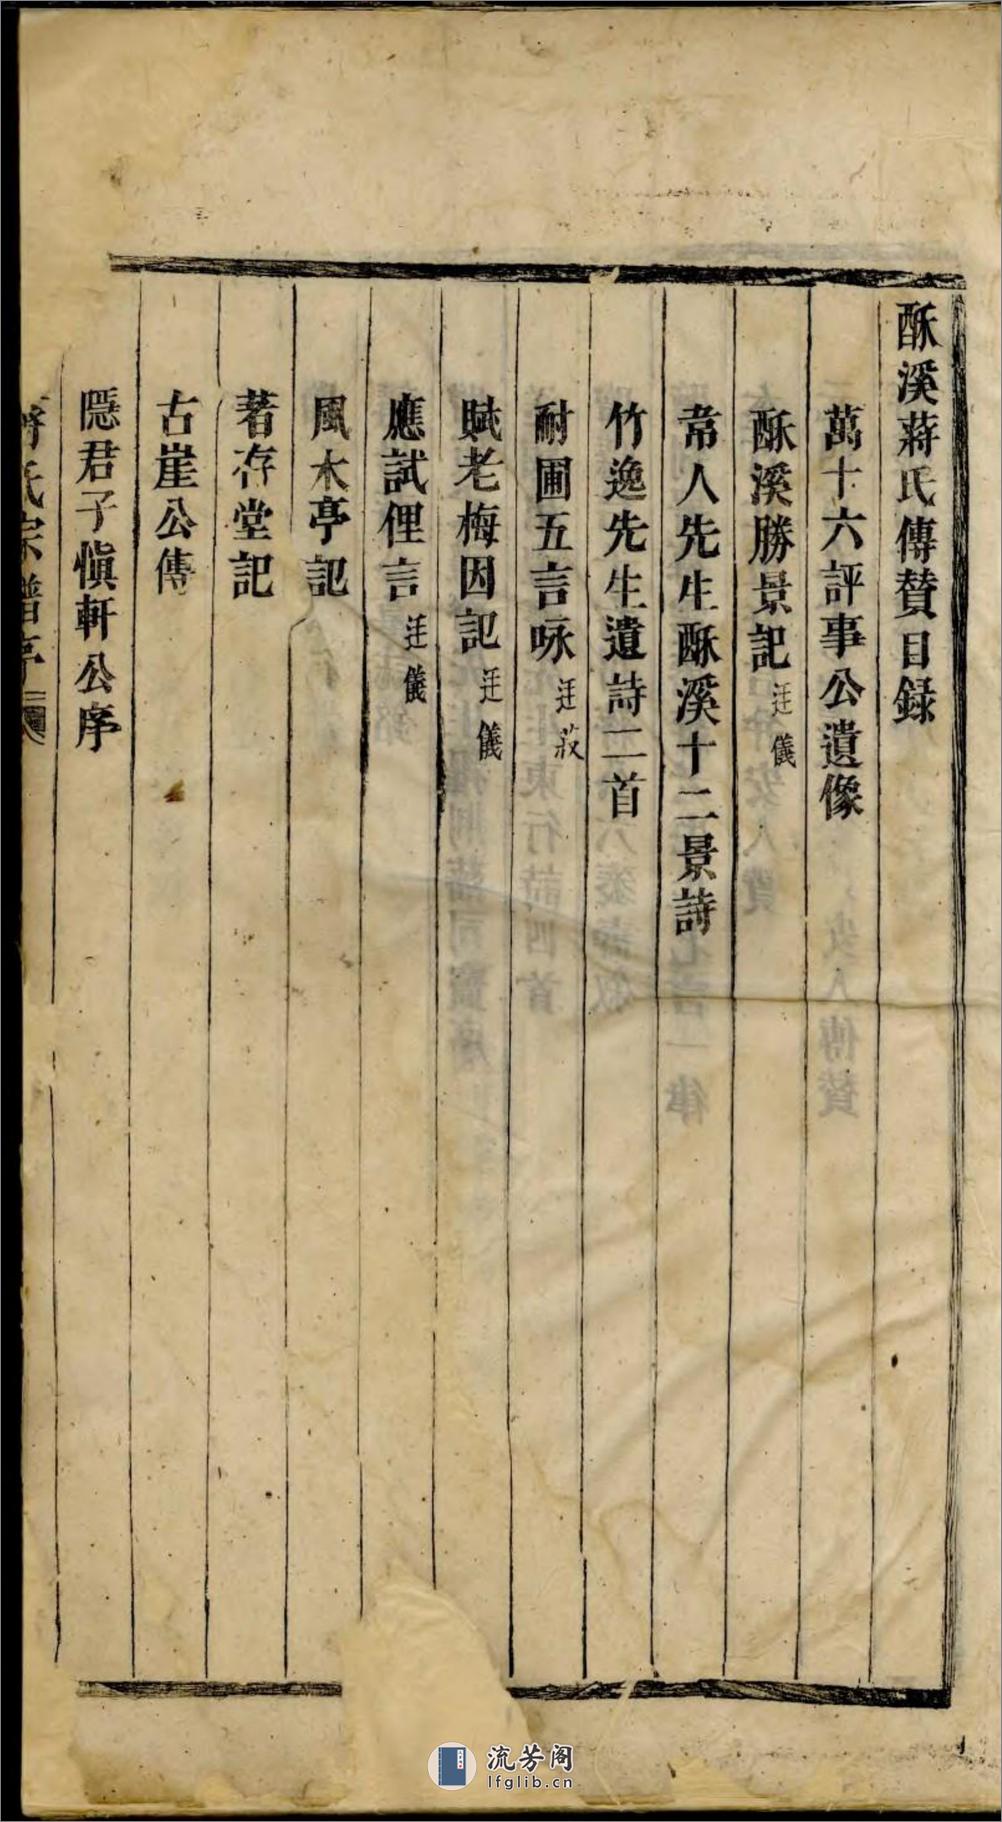 酥溪蔣氏傳贊目錄
萬十六評事公遺像
酥溪勝景記 廷儀
常人先生酥溪十二景詩
竹逸先生遺詩二首
耐圃五言咏 廷菽
賦老梅因記 廷儀
應試俚言 廷儀
風木亭記
著存堂記
古崖公傳
隱君子愼軒公序
蔣氏宗譜
流芳阁
lfglib.cn